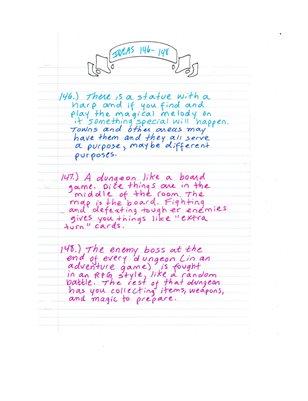 IDEAS 146-148
146.) There is a statue with a
harp and if you find and
play the magical melody on
it something special will happen.
Towns and other areas may
have them and they all serve
a purpose, maybe different
purposes.
147.) A dungeon like a board
game. Dice things are in the
middle of the room. The
map is the board. Fighting
and defeating tougher enemies
gives you things like "extra
turn" cards.
148.) The enemy boss at the
end of every dungeon (in an
adventure game) is fought
in an RPG style, like a random
battle. The rest of that dungeon
has you collecting items, weapons,
and magic to prepare.